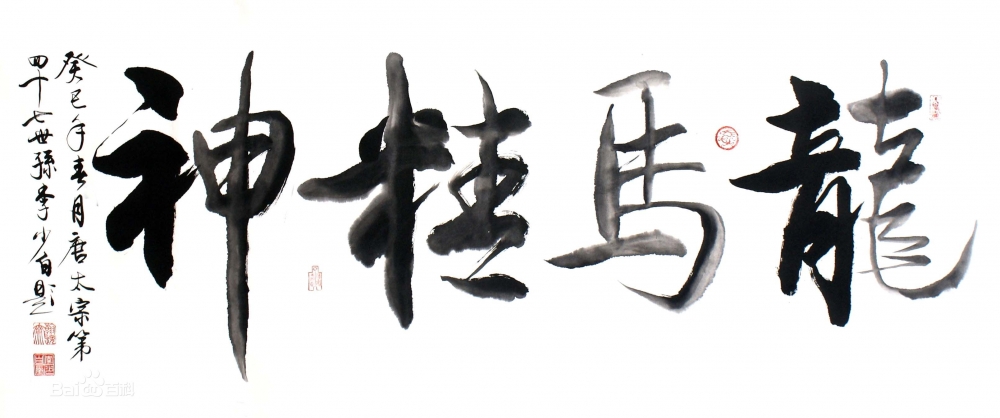 龍馬精神
癸巳年春月唐太宗第
四十七世孫李小白題
Bai百科